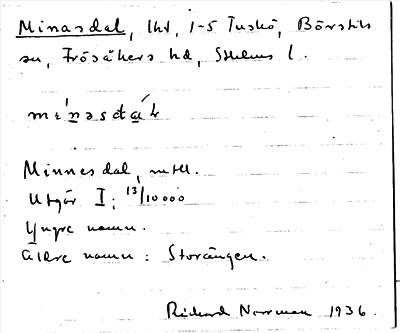 Minasdal, lht, 1-5 Tuskö, Börstils
sn, Frösåkers hd, Sthlms l.
Minnesdal, mtll.
Utgår I; 13/10000
Yngre namn.
Äldre namn: Storängen.
Rickard Norrman 1936.